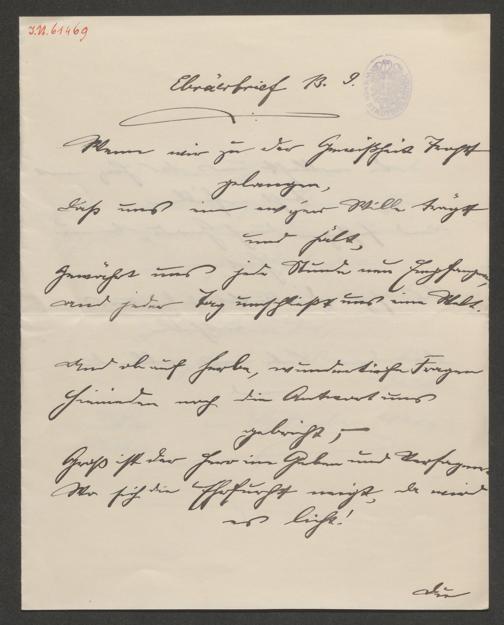 J.N. 61469
Ebräerbrief B. 9.
Wenn wir zu der Gewißheit
gelangen,
daß uns ein ew'ger Wille trägt
und hält,
Gewährt uns jede Stunde neu Empfangen,
und jeder Tag umschließt uns eine Welt.
Und ob auf herbe, wundertiefe Fragen
Hienieden noch die Antwort uns
gebricht, –
Groß ist der Herr im Geben und Versagen,
Wo sich die Ehrfurcht neigt, da wird
es licht!